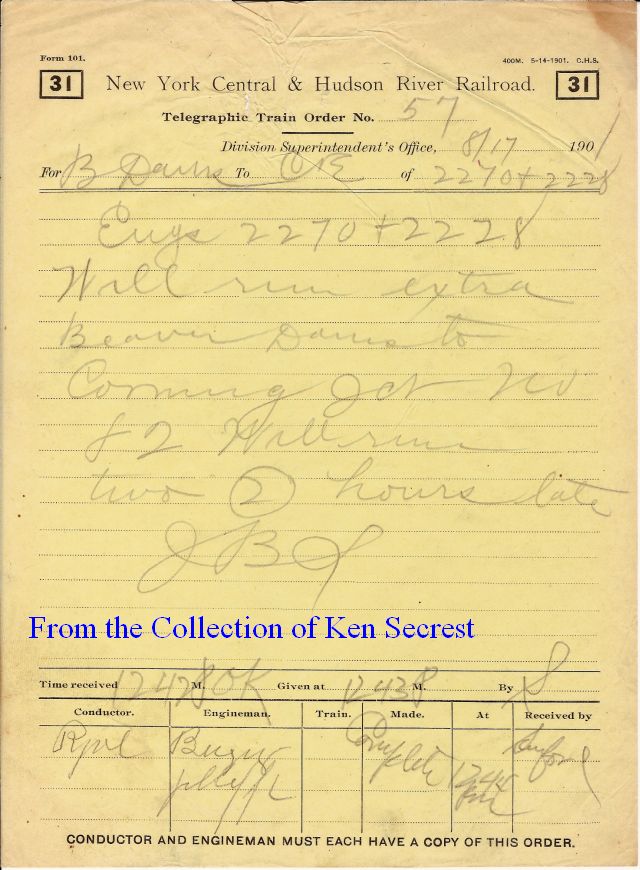 Form 101. 400M. 5-14-1901. C.H.S.
31 New York Central & Hudson River Railroad. 31
Telegraphic Train Order No. 57
Division Superintendent's Office, 8/17 1901
For B Dams To C&E of 2270 + 2228
Engs 2270 + 2228
Will run extra
Beaver Dams to
Corning Jct No
82 Will run
two 2 hours late
JBS
From the Collection of Ken Secrest
Time received M. OK Given at M. By S
Conductor. Engineman. Train. Made. At Received by
Complete
CONDUCTOR AND ENGINEMAN MUST EACH HAVE A COPY OF THIS ORDER.